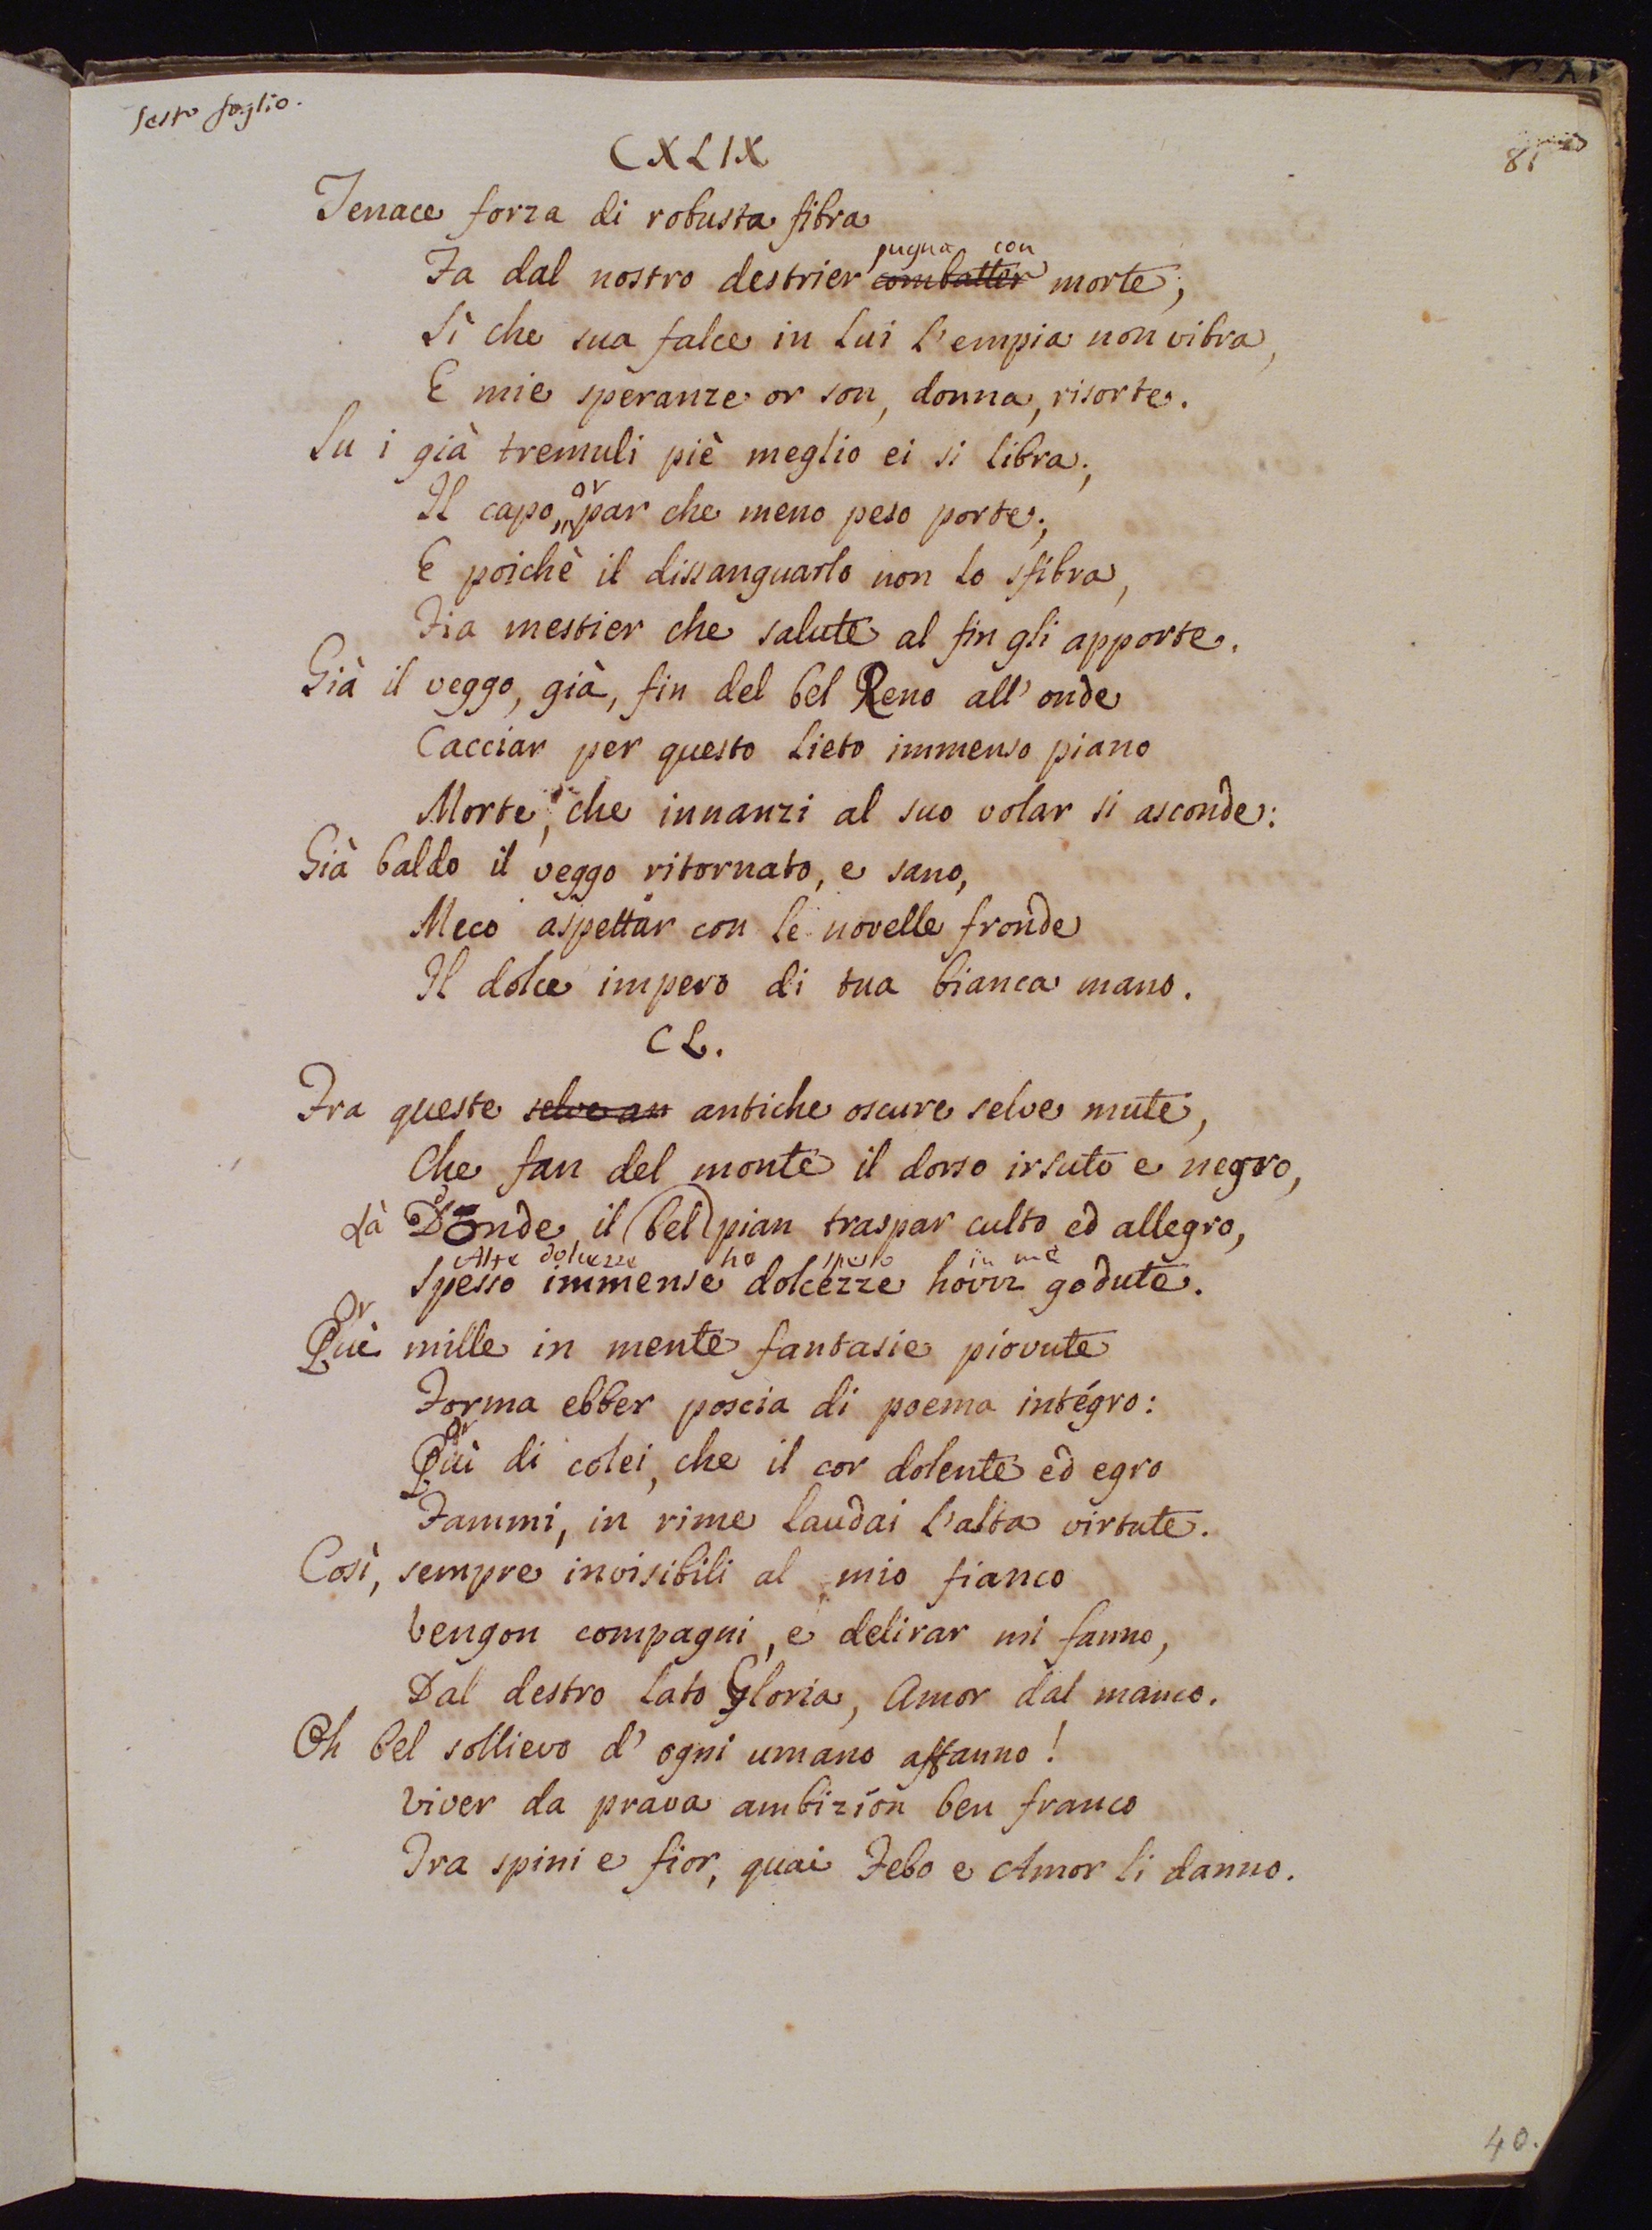 Sesto foglio.
81
CXLIX
Tenace forza di robusta fibra
pugna con
Fa dal nostro destrier combatter morte;
Sì che sua falce in lui l'empia non vibra,
E mie speranze or son, donna, risorte.
Su i già tremuli piè meglio ei si libra;
or
Il capo, par che meno peso porte;
E poichè il dissanguarlo non lo sfibra,
Fia mestier che salute al fin gli apporte.
Già il veggo, già, fin del bel Reno all'onde
Cacciar per questo lieto immenso piano
Morte, che innanzi al suo volar si asconde:
Già baldo il veggo ritornato, e sano,
Meco aspettar con le novelle fronde
Il dolce impero di tua bianca mano.
CL.
Fra queste selve an antiche oscure selve mute,
Che fan del monte il dorso irsuto e negro,
Là Donde il (bel) pian traspar culto ed allegro,
Alte dolcezze ho spesso in me
Spesso immense dolcezze hovvi godute.
Or
Quì mille in mente fantasie piovute
Forma ebber poscia di poema intégro:
Or
Quì di colei, che il cor dolente ed egro
Fammi, in rime laudai l'alta virtute.
Così, sempre invisibili al mio fianco
Vengon compagni, e delirar mi fanno,
Dal destro lato Gloria, Amor dal manco.
Oh bel sollievo d'ogni umano affanno!
Viver da prava ambizion ben franco
Tra spini e fior, quai Febo e Amor li danno.
40.